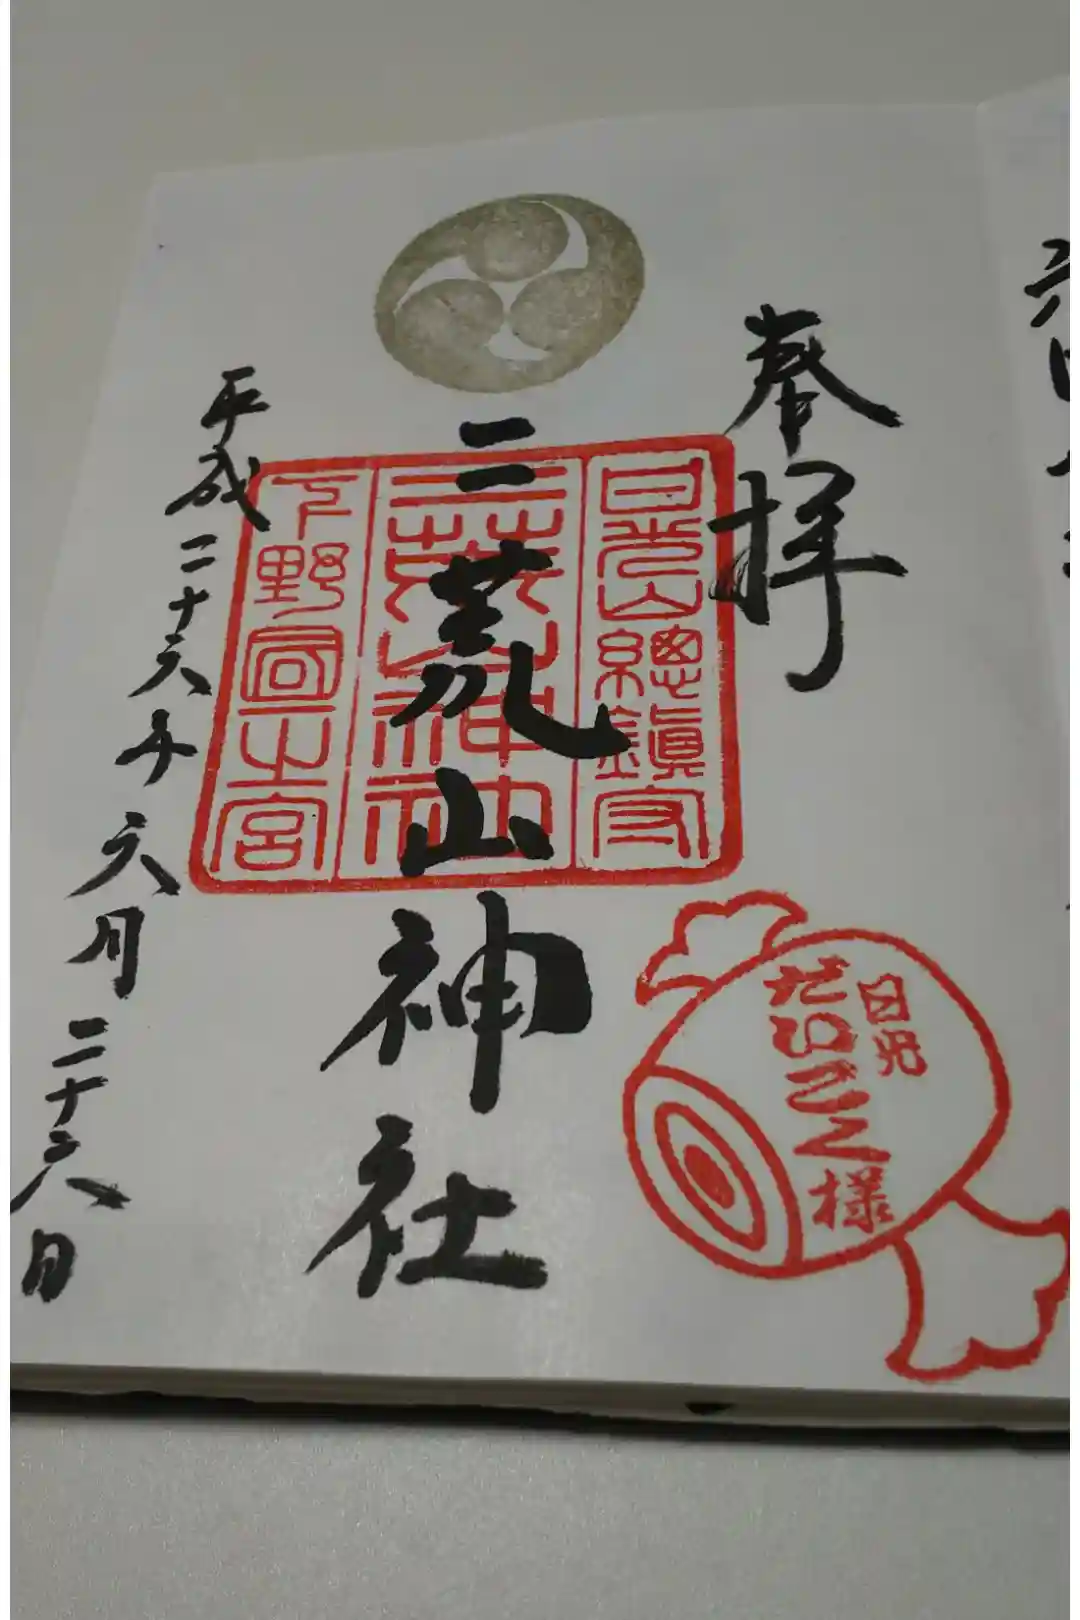 奉拝
日光山總鎮守
二荒山神社
二荒山神社
下野國一宮
平成二十六年六月二十八日
日光
だいこく様